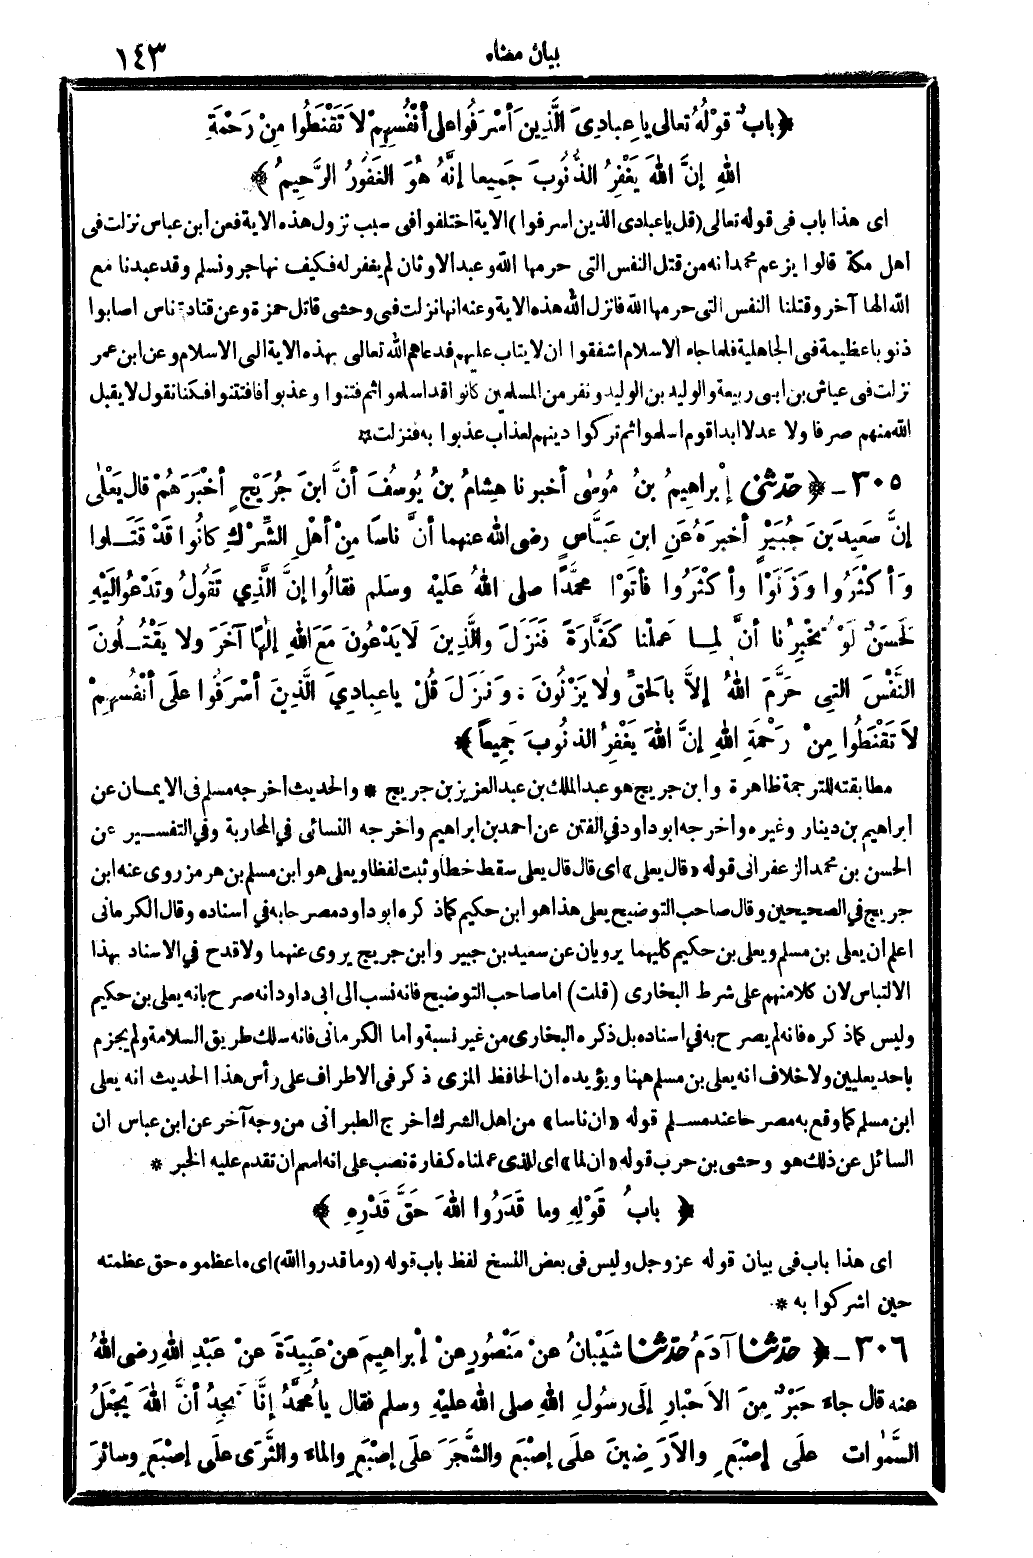 بيان معناه ١٤٣
﴿ بابُ قَوْلُهُ تعالى ياعِبادِىَ الَّذِينَ أسْرَفُوا على أنْفُسِهِمْ لاَ تَقْنَطُوا مِنْ رَحْمَةِ
اللهِ إنَّ اللهَ يَغْفِرُ الذُّنُوبَ جَمِيعا إنَّهُ هُوَ الغَفُورُ الرَّحِيمُ ﴾
اى هذا باب فى قوله تعالى (قل ياعبادى الذين اسرفوا) الاية اختلفوا فى سبب نزول هذه الاية فعن ابن عباس نزلت فى
أهل مكة قالوا يزعم محمد انه من قتل النفس التى حرمها الله وعبد الاوثان لم يغفر له فكيف نهاجر ونسلم وقد عبدنا مع
الله الها آخر وقتلنا النفس التى حرمها الله فانزل الله هذه الاية وعنه انها نزلت فى وحشى قاتل حمزة وعن قتادة ناس اصابوا
ذنوبا عظيمة فى الجاهلية فلما جاء الاسلام اشفقوا ان لا يتاب عليهم فدعاهم الله تعالى بهذه الاية الى الاسلام وعن ابن عمر
نزلت فى عياش بن ابى ربيعة والوليد بن الوليد ونفر من المسلمين كانوا قد اسلموا ثم فتنوا وعذبوا فافتتنوا فكنا نقول لا يقبل
الله منهم صرفا ولا عدلا ابدا قوم اسلموا ثم تركوا دينهم لعذاب عذبوا به فنزلت *
٣٠٥ - ﴿ حدّثنى إبراهيمُ بنُ مُوسٰى أخبرنا هِشامُ بنُ يُوسُفَ أنَّ ابنَ جُرَيْجٍ أخْبَرَهُمْ قال يَعْلٰى
إنَّ سَعِيدَ بنَ جُبَيْرٍ أخبرَهُ عَنِ ابنِ عَبَّاسٍ رضى الله عنهما أنَّ ناسًا مِنْ أهْلِ الشِّرْكِ كانُوا قَدْ قَتَلوا
وَأكْثَرُوا وَزَنَوْا وأكْثَرُوا فأتَوْا محَمَّدًا صلى اللهُ عَلَيْهِ وسَلم فقالُوا إنَّ الَّذِي تَقُولُ وتَدْعُو إلَيْهِ
لَحَسَنٌ لَوْ تُخْبِرُنا أنَّ لِما عَمِلْنا كَفَّارَةً فَنَزَلَ والَّذِينَ لاَ يَدْعُونَ مَعَ اللهِ إلٰهًا آخَرَ ولا يَقْتُلُونَ
النَّفْسَ التِى حَرَّمَ اللهُ إلاَّ بالحَقِّ ولاَ يَزْنُونَ . وَنَزَلَ قُلْ ياعِبادِيَ الَّذِينَ أسْرَفُوا علَى أنْفُسِهِمْ
لاَ تَقْنَطُوا مِنْ رَحْمَةِ اللهِ إنَّ اللهَ يَغْفِرُ الذنُوبَ جَمِيعاً ﴾
مطابقته للترجمة ظاهرة وابن جريج هو عبد الملك بن عبد العزيز بن جريج * والحديث أخرجه مسلم فى الايمان عن
ابراهيم بن دينار وغيره وأخرجه ابو داود في الفتن عن احمد بن ابراهيم واخرجه النسائى في المحاربة وفي التفسير عن
الحسن بن محمد الزعفرانى قوله «قال يعلى» اى قال قال يعلى سقط خطا وثبت لفظا ويعلى هو ابن مسلم بن هرمز روى عنه ابن
جريج في الصحيحين وقال صاحب التوضيح يعلى هذا هو ابن حكيم كما ذكره ابو داود مصرحا به في اسناده وقال الكرمانى
اعلم أن يعلى بن مسلم ويعلى بن حكيم كليهما يرويان عن سعيد بن جبير وابن جريج يروى عنهما ولا قدح في الاسناد بهذا
الالتباس لان كلا منهم على شرط البخارى (قلت) اما صاحب التوضيح فانه نسب الى ابى داود انه صرح بانه يعلى بن حكيم
وليس كما ذكره فانه لم يصرح به في اسناده بل ذكره البخارى من غير نسبة وأما الكرمانى فانه سلك طريق السلامة ولم يجزم
باحد يعليين ولا خلاف انه يعلى بن مسلم ههنا ويؤيده ان الحافظ المزى ذكر فى الاطراف على رأس هذا الحديث انه يعلى
ابن مسلم كما وقع به مصرحا عند مسلم قوله «ان ناسا» من اهل الشرك اخرج الطبرانى من وجه آخر عن ابن عباس ان
السائل عن ذلك هو وحشى بن حرب قوله «ان لما» اى للذى عملناه كفارة نصب على انه اسم ان تقدم عليه الخبر *
﴿ بابُ قَوْلِهِ وما قَدَرُوا اللهَ حَقَّ قَدْرِهِ ﴾
اى هذا باب فى بيان قوله عز وجل وليس فى بعض النسخ لفظ باب قوله (وما قدروا الله) اى ما عظموه حق عظمته
حين اشركوا به *
٣٠٦ - ﴿ حدّثنا آدَمُ حدّثنا شَيْبانُ عنْ مَنْصُورٍ عنْ إبراهِيمَ عنْ عَبِيدَةَ عنْ عَبْدِ اللهِ رضى اللهُ
عنه قال جاءَ حَبْرٌ مِنَ الأحْبارِ إلَى رسُولِ اللهِ صلى الله عليْهِ وسلم فقال يا مُحَمَّدُ إنَّا نَجِدُ أنَّ اللهَ يَجْعَلُ
السَّمٰوَات علَى إصْبَعٍ والأرَضِينَ علَى إصْبَعٍ والشَّجَرَ علَى إصْبَعٍ والماءَ والثَّرَى علَى إصْبَعٍ وسائِرَ